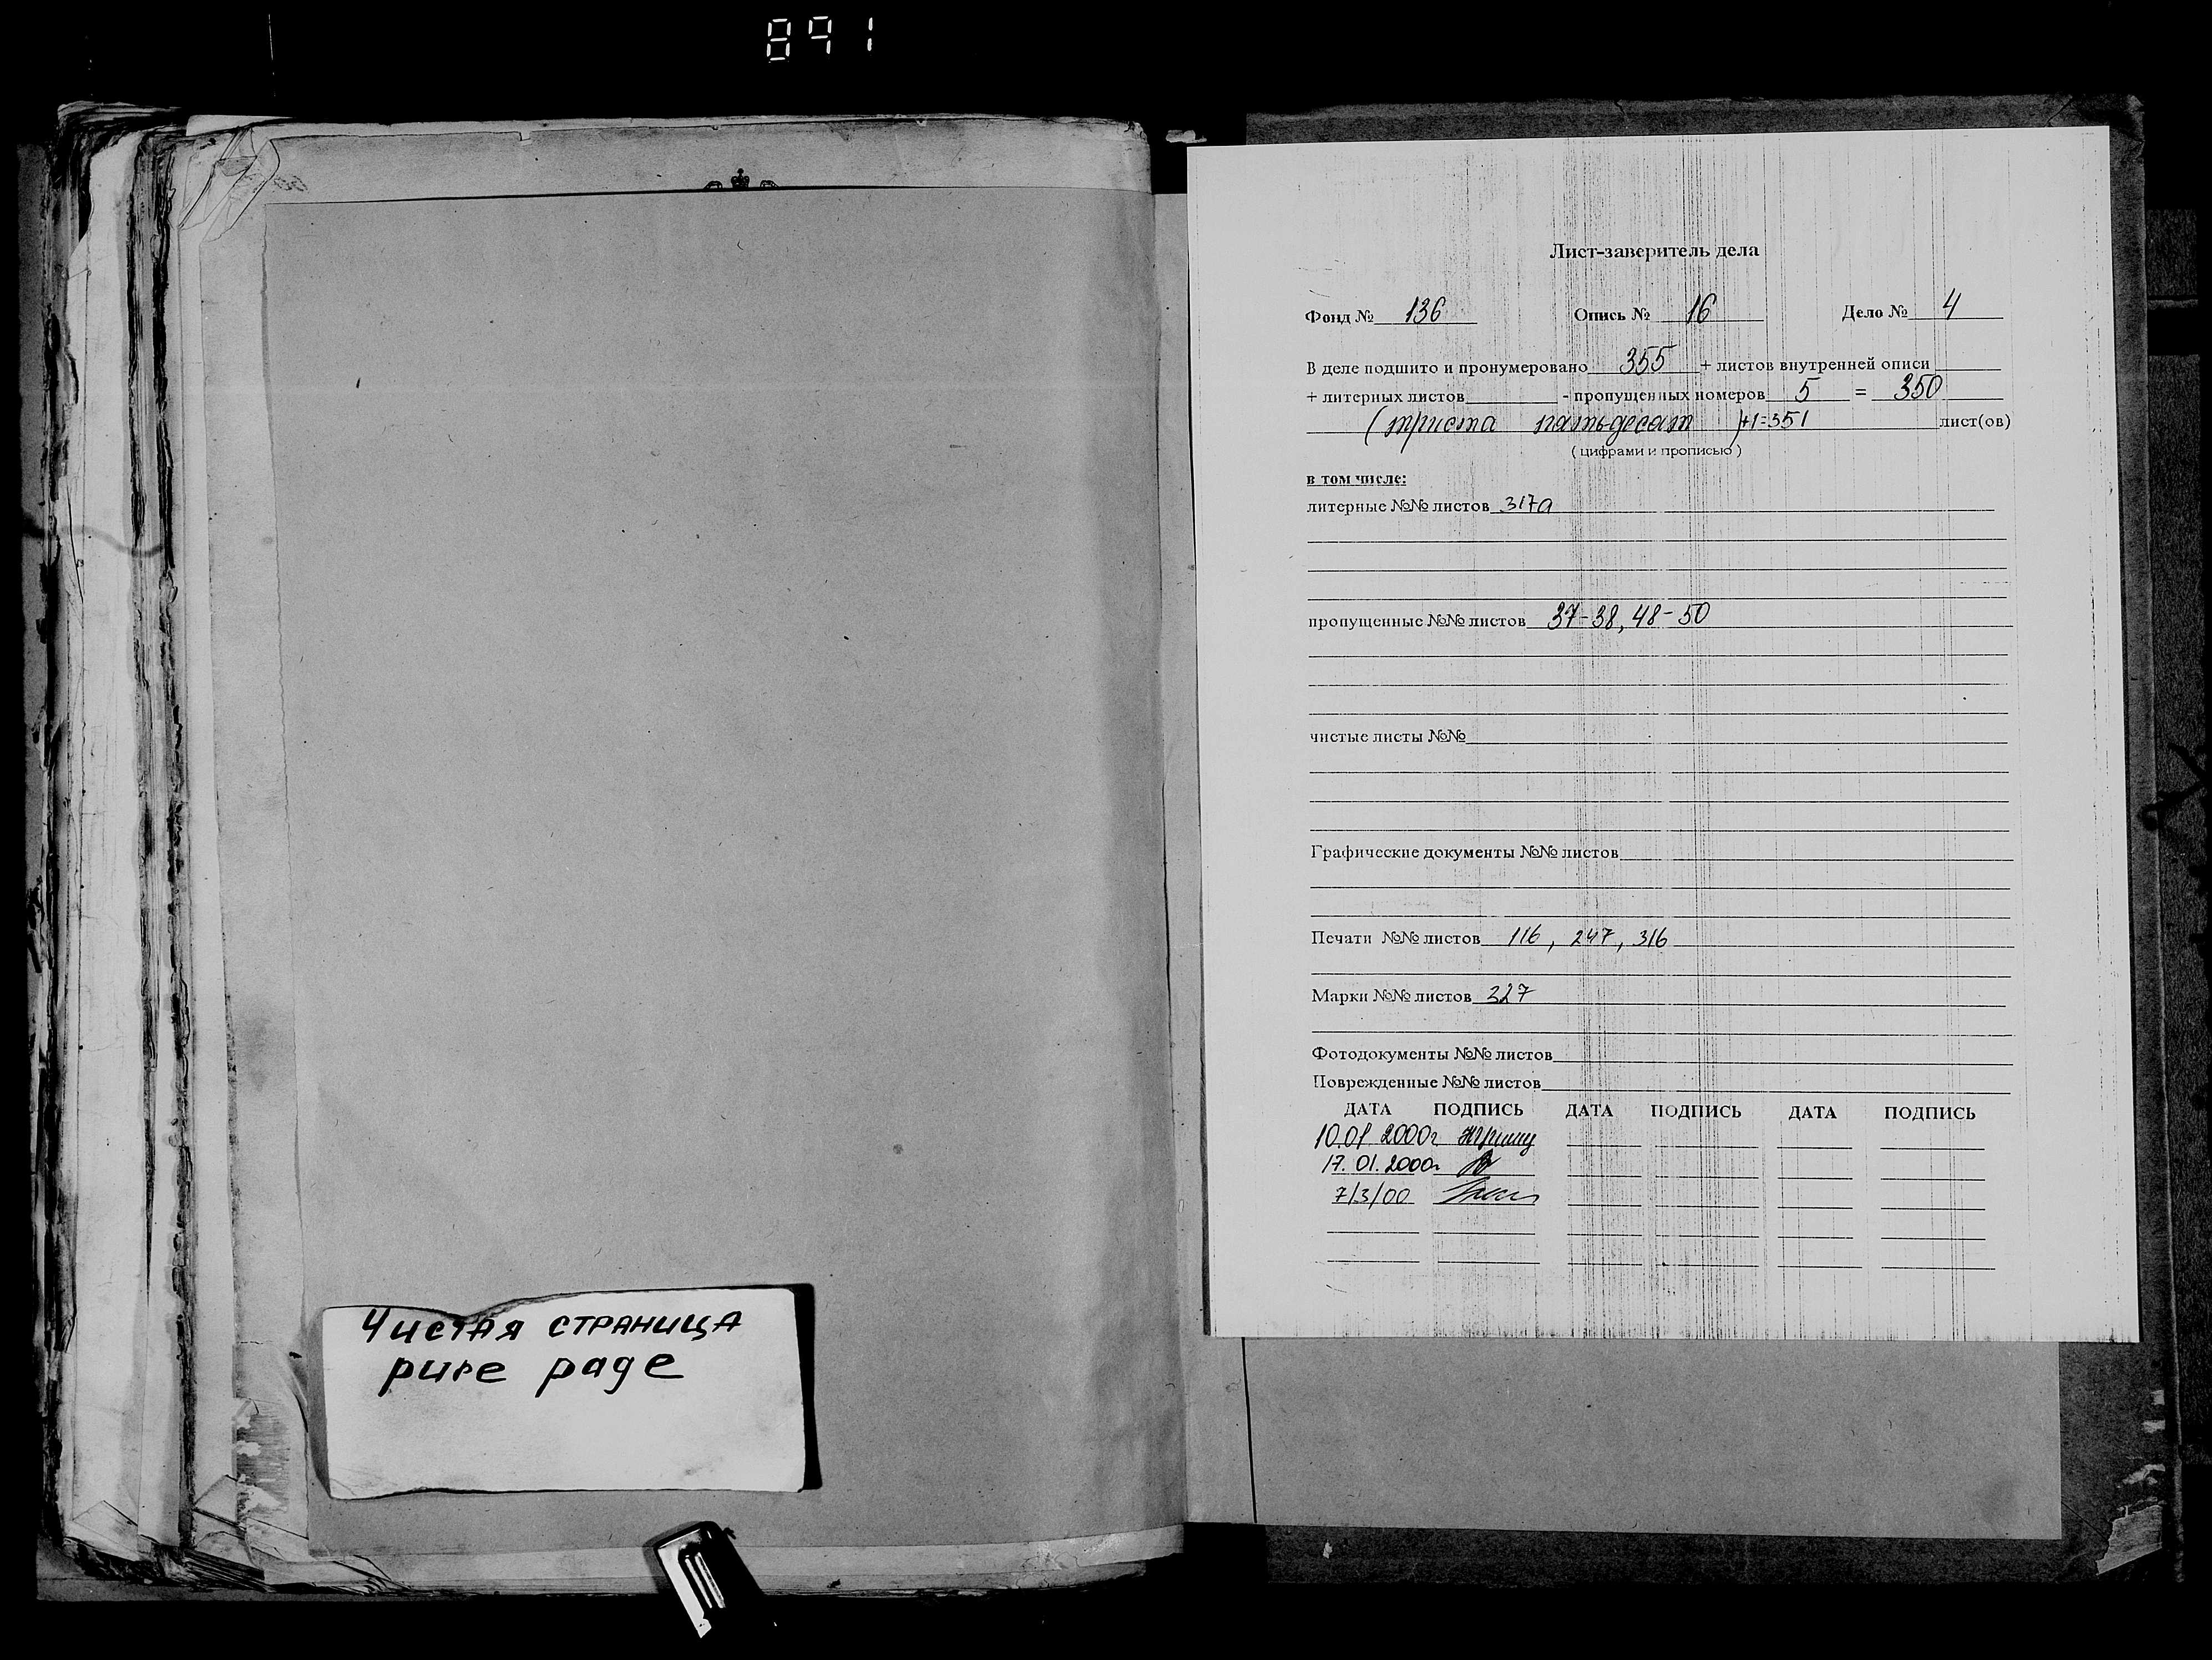 891
Чистая страница
pure page
Лист-заверитель дела
Фонд № 136 Опись № 16 Дело № 4
В деле подшито и пронумеровано 355 + листов внутренней описи
+ литерных листов - пропущенных номеров 5 = 350
(триста пятьдесят )+1=351 лист(ов)
( цифрами и прописью )
в том числе:
литерные №№ листов 317а
пропущенные №№ листов 37-38, 48-50
чистые листы №№
Графические документы №№ листов
Печати №№ листов 116, 247, 316
Марки №№ листов 327
Фотодокументы №№ листов
Поврежденные №№ листов
ДАТА ПОДПИСЬ ДАТА ПОДПИСЬ ДАТА ПОДПИСЬ
10.01 2000г
17.01.2000г
7/3/00